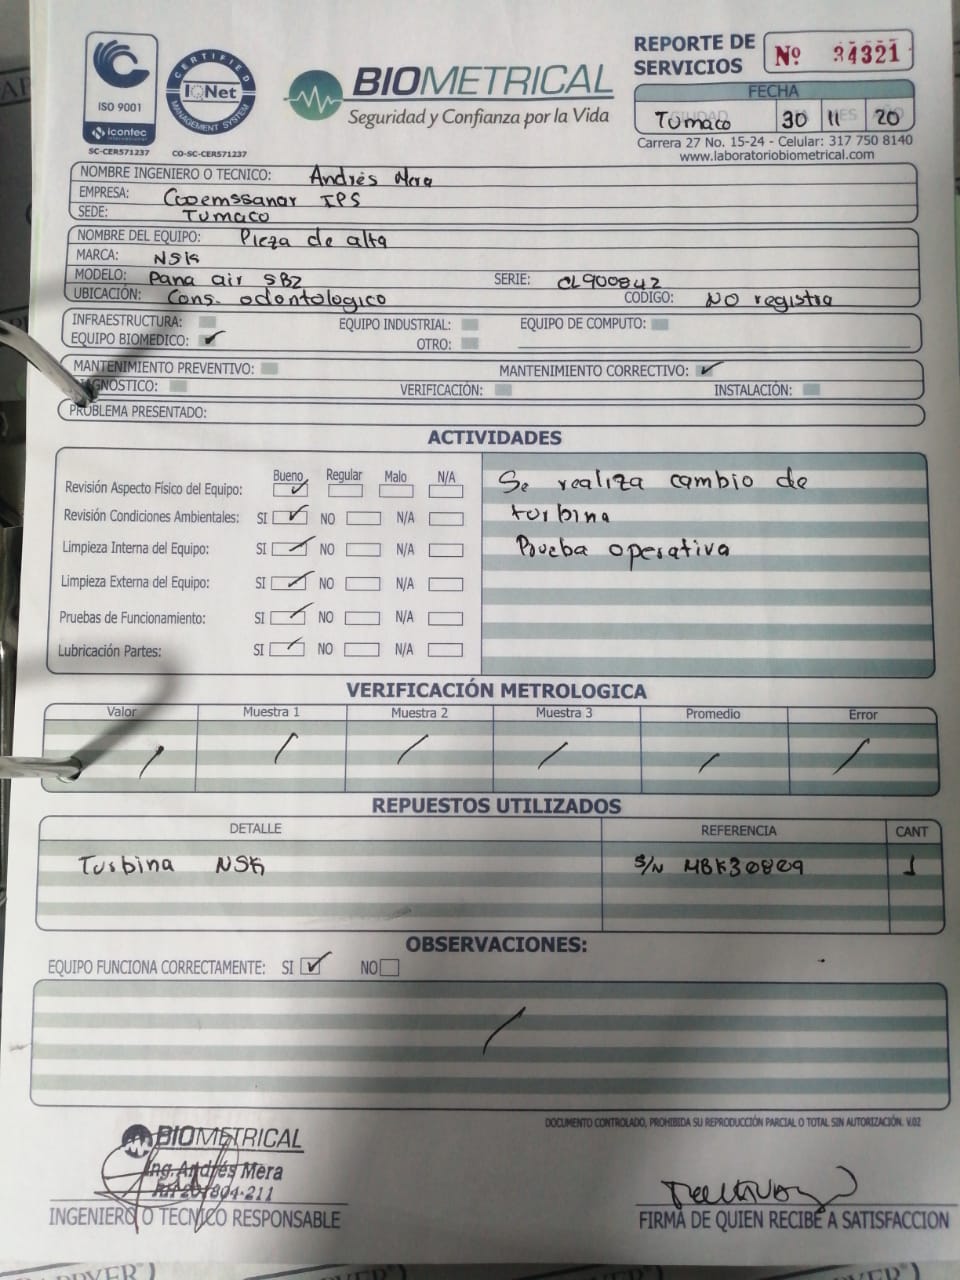 ISO 9001
icontec
SC-CER571237
CERTIFIED
IQNet
MANAGEMENT SYSTEM
CO-SC-CER571237
BIOMETRICAL
Seguridad y Confianza por la Vida
REPORTE DE SERVICIOS Nº 34321
FECHA
Tumaco 30 11 20
Carrera 27 No. 15-24 - Celular: 317 750 8140
www.laboratoriobiometrical.com
NOMBRE INGENIERO O TECNICO: Andrés Mera
EMPRESA: Cooemssanar IPS
SEDE: Tumaco
NOMBRE DEL EQUIPO: Pieza de alta
MARCA: NSK
MODELO: Pana air SB2 SERIE: CL900842
UBICACIÓN: Cons. odontologico CODIGO: NO registra
INFRAESTRUCTURA: EQUIPO INDUSTRIAL: EQUIPO DE COMPUTO:
EQUIPO BIOMEDICO: ✓ OTRO:
MANTENIMIENTO PREVENTIVO: MANTENIMIENTO CORRECTIVO: ✓
DIAGNÓSTICO: VERIFICACIÓN: INSTALACIÓN:
PROBLEMA PRESENTADO:
ACTIVIDADES
Bueno Regular Malo N/A
Revisión Aspecto Físico del Equipo: ✓
Revisión Condiciones Ambientales: SI ✓ NO N/A
Limpieza Interna del Equipo: SI ✓ NO N/A
Limpieza Externa del Equipo: SI ✓ NO N/A
Pruebas de Funcionamiento: SI ✓ NO N/A
Lubricación Partes: SI ✓ NO N/A
Se realiza cambio de
turbina
Prueba operativa
VERIFICACIÓN METROLOGICA
Valor Muestra 1 Muestra 2 Muestra 3 Promedio Error
/ / / / / /
REPUESTOS UTILIZADOS
DETALLE REFERENCIA CANT
Turbina NSK S/N MBK30809 1
OBSERVACIONES:
EQUIPO FUNCIONA CORRECTAMENTE: SI ✓ NO
/
DOCUMENTO CONTROLADO, PROHIBIDA SU REPRODUCCIÓN PARCIAL O TOTAL SIN AUTORIZACIÓN. V.02
BIOMETRICAL
Ing. Andrés Mera
INGENIERO O TECNICO RESPONSABLE
FIRMA DE QUIEN RECIBE A SATISFACCION